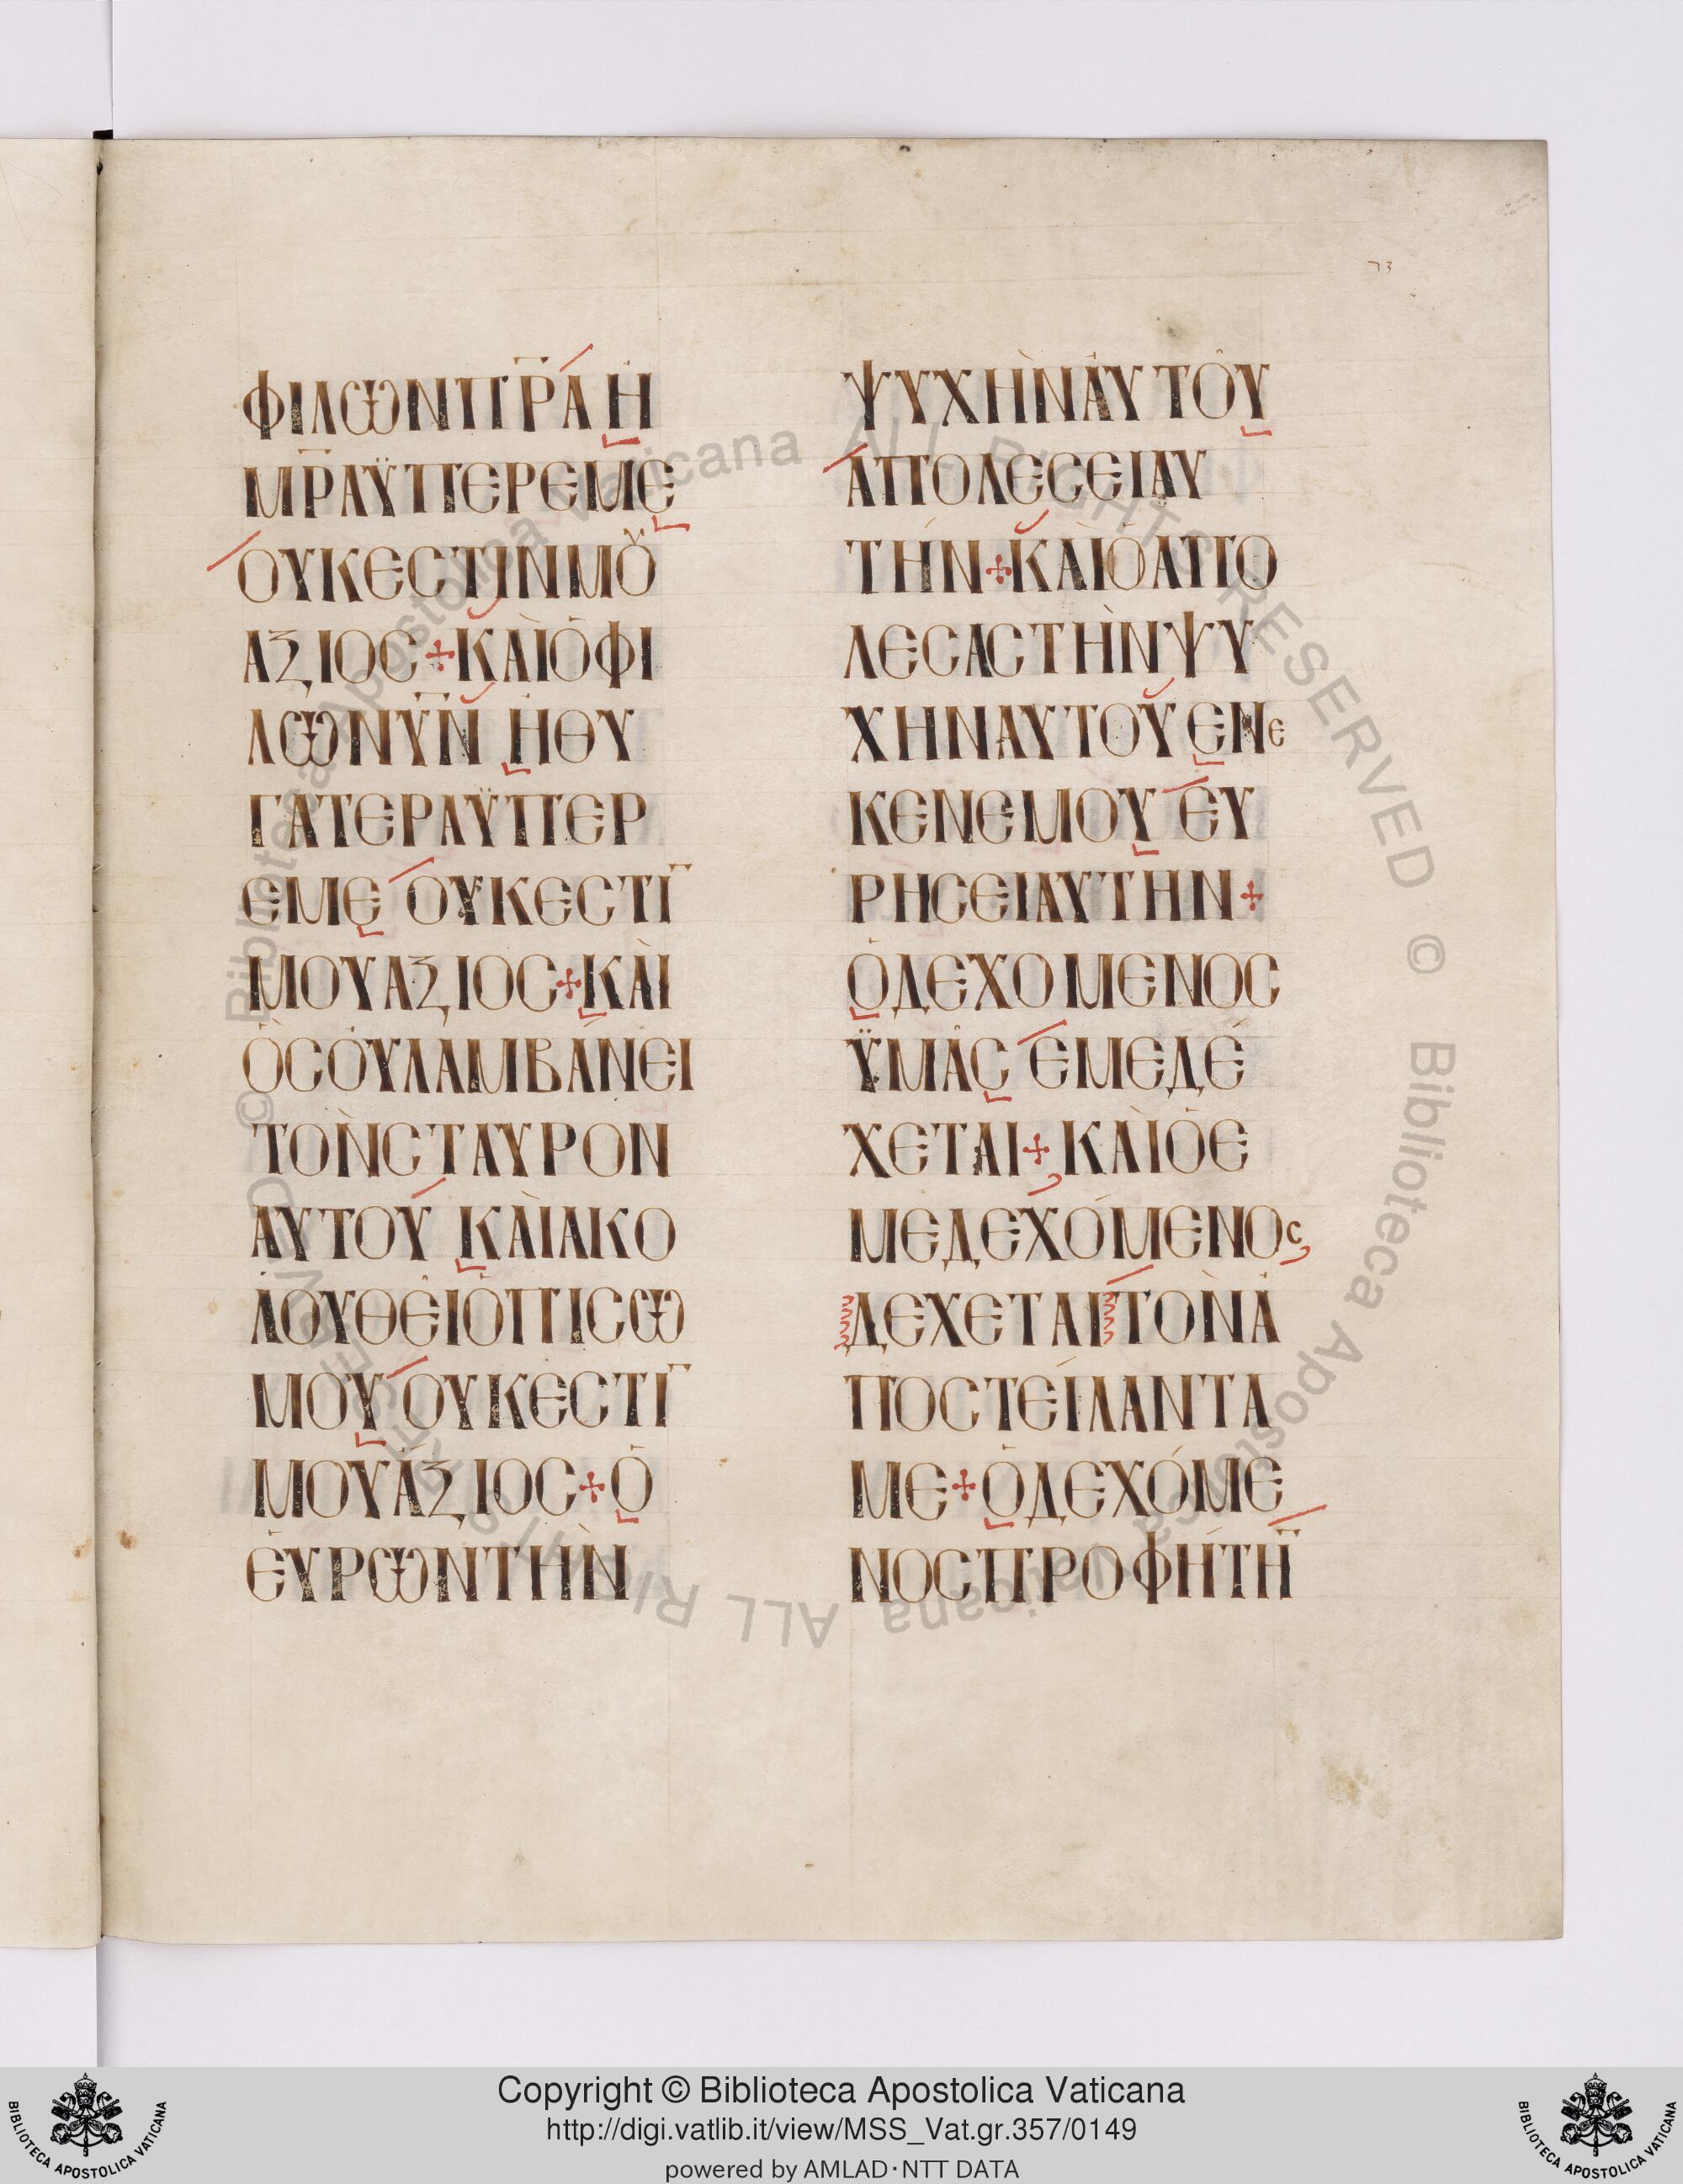 73
ΦΙΛѠΝΠ̅Ρ̅ΆΗ
Μ̅Ρ̅ΑΫΠΕΡΕΜΕ
ΟΥΚΕϹΤΙΝΜȢ
ΑΞΙΟϹ⁘ΚΑῚΟΦΙ
ΛѠΝΥ̅Ν̅ΗΘΥ
ΓΑΤΕΡΑΫΠΕΡ
ΕΜΕΟΥΚΕϹΤΙ̅
ΜΟΥΑΞΙΟϹ⁘ΚΑῚ
ΟϹΟΥΛΑΜΒΆΝΕΙ
ΤῸΝϹΤΑΥΡΟΝ
ΑΥΤΟΥΚΑῚΑΚΟ
ΛΟΥΘΕΙΟΠΙϹѠ
ΜΟΥΟΥΚΕϹΤΙ̅
ΜΟΥΆΞΙΟϹ⁘Ο
ΕΥΡѠΝΤῊΝ
ΨΥΧῊΝΑΥΤΟΥ
ΑΠΟΛΕϹΕΙΑΥ
ΤΉΝ⁘ΚΑῚΟΑΠΟ
ΛΕϹΑϹΤῊΝΨΥ
ΧΗΝΑΥΤΟΥΕΝΕ
ΚΕΝΕΜΟΥΕΥ
ΡΗϹΕΙΑΥΤΗΝ⁘
ΟΔΕΧΟΜΕΝΟϹ
ΫΜΑϹΕΜΕΔΈ
ΧΕΤΑΙ⁘ΚΑῚΟΕ
ΜΕΔΕΧΌΜΕΝΟϹ
ΔΕΧΕΤΑΙΤῸΝΑ
ΠΟϹΤΕΊΛΑΝΤΑ
ΜΕ⁘ΟΔΕΧΌΜΕ
ΝΟϹΠΡΟΦΉΤΗ̅
© Biblioteca Apostolica Vaticana ALL RIGHTS RESERVED © Biblioteca Apostolica Vaticana ALL RIGHTS RESERVED
Copyright © Biblioteca Apostolica Vaticana
http://digi.vatlib.it/view/MSS_Vat.gr.357/0149
powered by AMLAD·NTT DATA
BIBLIOTECA APOSTOLICA VATICANA
BIBLIOTECA APOSTOLICA VATICANA